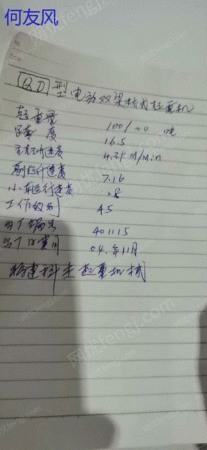 何友风
QD型电动双梁桥式起重机
起重量 100/20 吨
跨度 16.5
主起升速度 4.21 M/min
副起升速度 7.16
小车运行速度 28
工作级别 A5
出厂编号 401115
出厂日期 04.年11月
起重机械